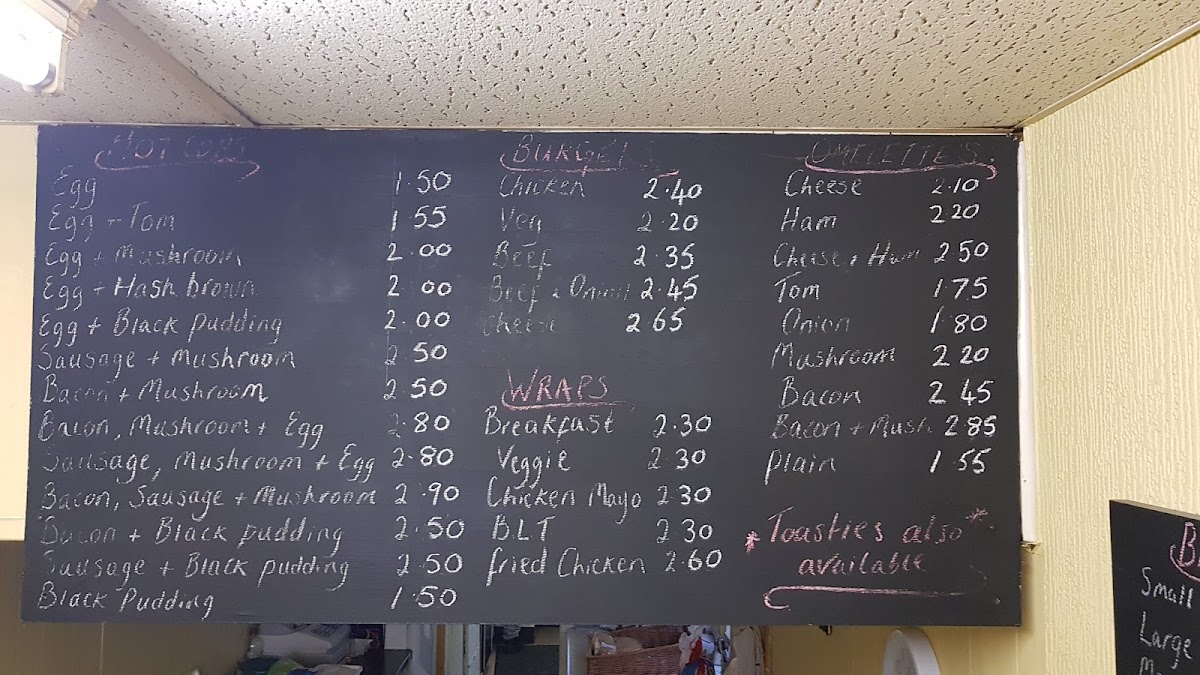 HOT COBS
Egg 1.50
Egg + Tom 1.55
Egg + Mushroom 2.00
Egg + Hash brown 2.00
Egg + Black pudding 2.00
Sausage + Mushroom 2.50
Bacon + Mushroom 2.50
Bacon, Mushroom + Egg 2.80
Sausage, Mushroom + Egg 2.80
Bacon, Sausage + Mushroom 2.90
Bacon + Black pudding 2.50
Sausage + Black pudding 2.50
Black Pudding 1.50
BURGERS
Chicken 2.40
Veg 2.20
Beef 2.35
Beef + Onion 2.45
cheese 2.65
WRAPS
Breakfast 2.30
Veggie 2.30
Chicken Mayo 2.30
B.L.T 2.30
fried Chicken 2.60
OMELETTES.
Cheese 2.10
Ham 2.20
Cheese + Ham 2.50
Tom 1.75
Onion 1.80
Mushroom 2.20
Bacon 2.45
Bacon + Mush 2.85
plain 1.55
*Toasties also*
available
Small
Large